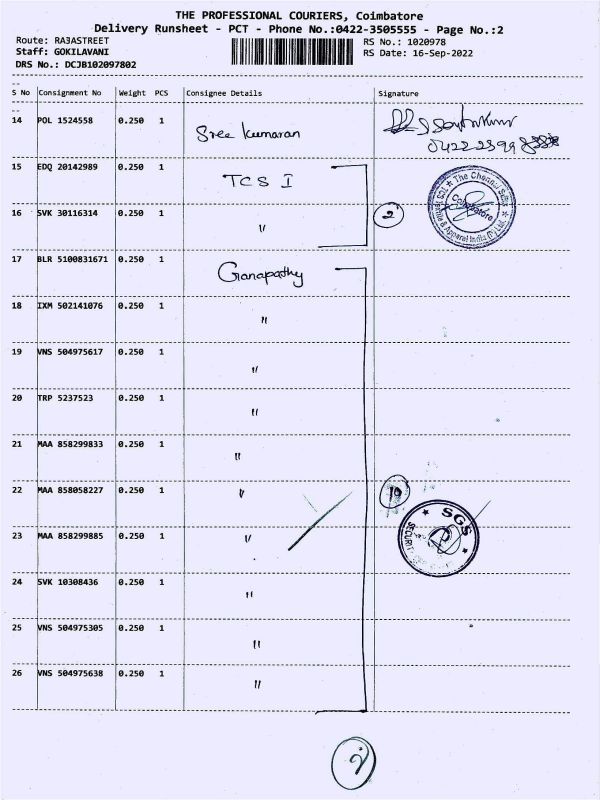 THE PROFESSIONAL COURIERS, Coimbatore
Delivery Runsheet - PCT - Phone No.:0422-3505555 - Page No.:2
Route: RA3ASTREET
RS No.: 1020978
Staff: GOKILAVANI
RS Date: 16-Sep-2022
DRS No.: DCJB102097802
S No Consignment No Weight PCS Consignee Details Signature
14 POL 1524558 0.250 1 Sree Kumaran
15 EDQ 20142989 0.250 1 TCS I
16 SVK 30116314 0.250 1 " 2
The Chennai Silks
Coimbatore
17 BLR 5100831671 0.250 1 Ganapathy
18 IXM 502141076 0.250 1 "
19 VNS 504975617 0.250 1 "
20 TRP 5237523 0.250 1 "
21 MAA 858299833 0.250 1 "
22 MAA 858058227 0.250 1 " 10
23 MAA 858299885 0.250 1 "
SGS
24 SVK 10308436 0.250 1 "
25 VNS 504975305 0.250 1 "
26 VNS 504975638 0.250 1 "
2